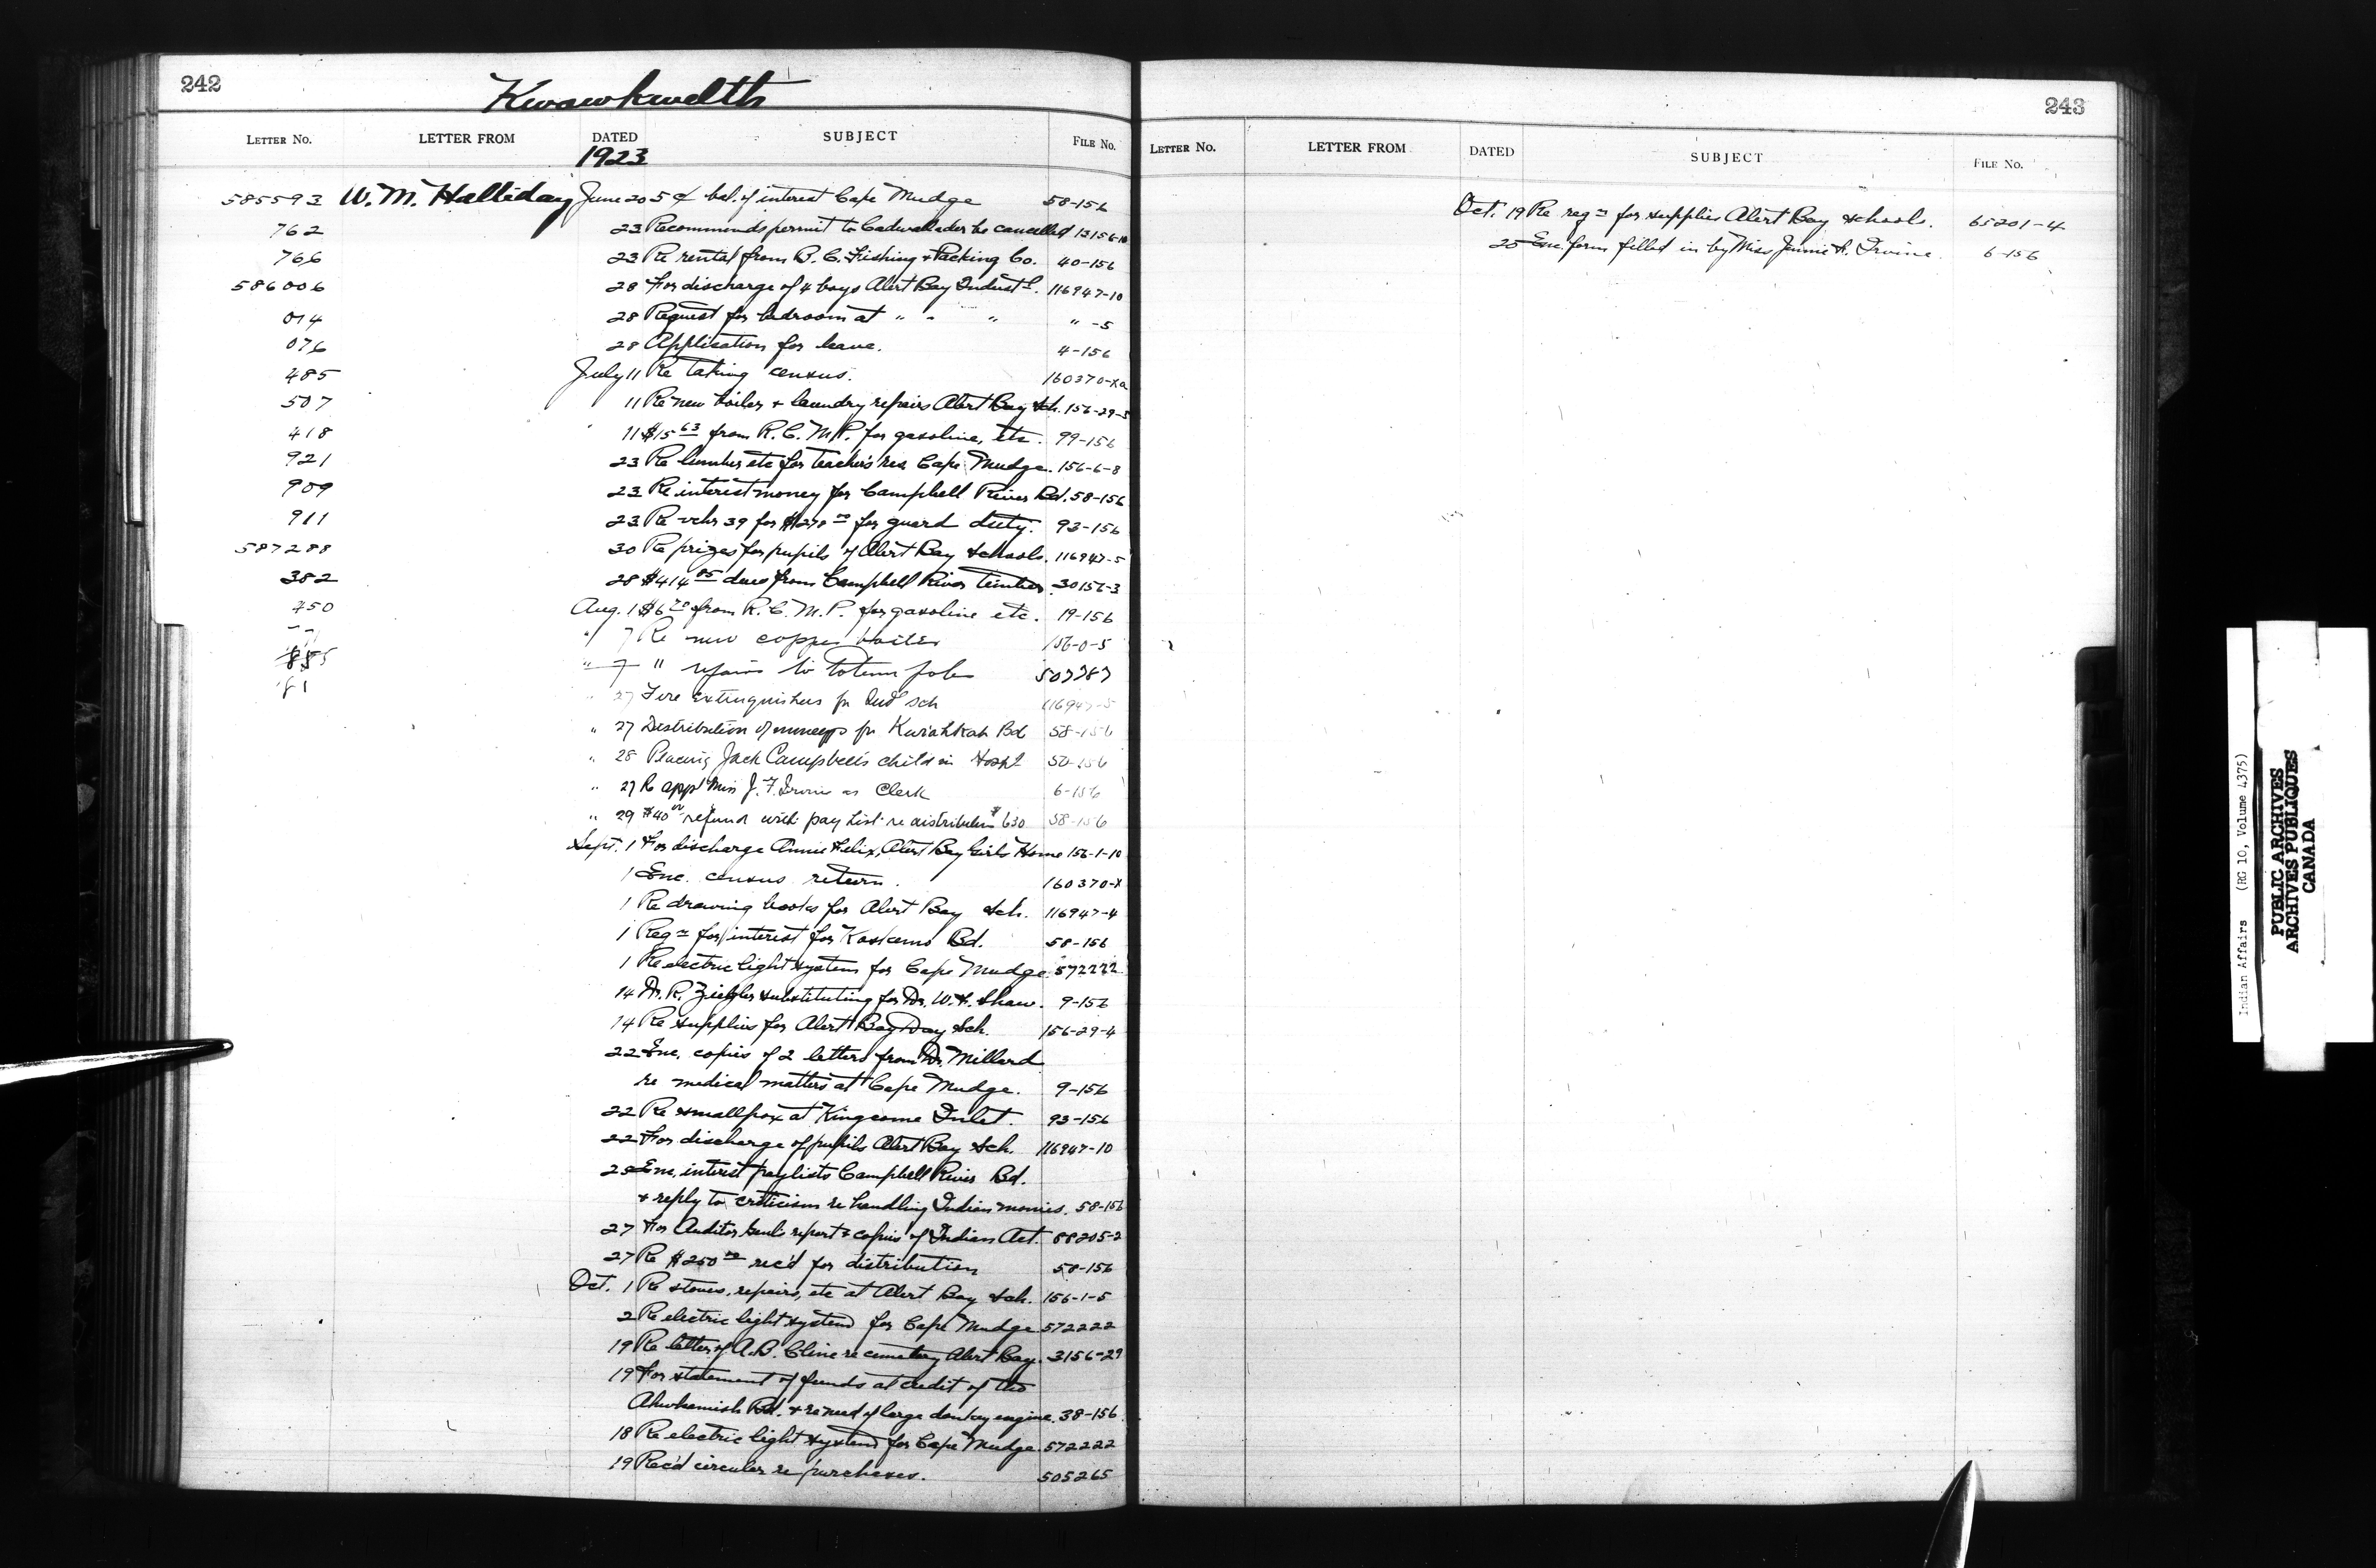 242
Kwawkwelth
LETTER NO. LETTER FROM DATED SUBJECT FILE NO.
1923
585593 W. M. Halliday June 20 5¢ bal. of interest Cape Mudge 58-156
762 23 Recommends permit to Cadwallader be cancelled 13156-10
766 23 Re rental from B. C. Fishing & Packing Co. 40-156
586006 28 For discharge of 4 boys Alert Bay Indust'l. 116947-10
014 28 Request for bedroom at " " " " -5
076 28 Application for leave. 4-156
485 July 11 Re taking census. 160370-Xa
507 11 Re new boiler & laundry repairs Alert Bay Sch. 156-29-5
418 11 $15 63 from R. C. M. P. for gasoline, etc. 99-156
921 23 Re lumber etc for teacher's res. Cape Mudge. 156-6-8
909 23 Re interest money for Campbell River Bd. 58-156
911 23 Re vchr 39 for $1278 00 for guard duty. 93-156
587288 30 Re prizes for pupils of Alert Bay Schools. 116947-5
382 28 $414 85 dues from Campbell River timber. 30156-3
450 Aug. 1 $6 70 from R. C. M. P. for gasoline etc. 19-156
" 7 Re new copper boiler 156-0-5
" 7 " repairs to totem poles 507787
" 27 Fire extinguishers for Ind sch 116947-5
" 27 Distribution of moneys for Kwiahkah Bd 58-156
" 28 Placing Jack Campbell's child in Hosp'l 50-156
" 27 Re app't Miss J. F. Irvine as Clerk 6-156
" 29 $40 00 refund with pay list re distribution $630 58-156
Sept. 1 For discharge Annie Felix, Alert Bay Girls Home 156-1-10
1 Enc. census return. 160370-X
1 Re drawing books for Alert Bay Sch. 116947-4
1 Reqn for interest for Koskemo Bd. 58-156
1 Re electric light system for Cape Mudge. 572222
14 Dr. R. Ziegler substituting for Dr. W. F. Shaw. 9-156
14 Re supplies for Alert Bay Day Sch. 156-29-4
22 Enc. copies of 2 letters from Dr. Millard
re medical matters at Cape Mudge. 9-156
22 Re smallpox at Kingcome Inlet. 93-156
22 For discharge of pupils Alert Bay Sch. 116947-10
25 Enc. interest paylists Campbell River Bd.
& reply to criticism re handling Indian monies. 58-156
27 For Auditor Genl's report & copies of Indian Act. 88205-2
27 Re $250 00 rec'd for distribution 58-156
Oct. 1 Re stoves, repairs, etc at Alert Bay Sch. 156-1-5
2 Re electric light system for Cape Mudge 572222
19 Re letter of A. B. Cline re cemetery Alert Bay. 3156-29
19 For statement of funds at credit of the
Ahwhamish Bd. & re need of large donkey engine. 38-156
18 Re electric light system for Cape Mudge. 572222
19 Rec'd circular re purchases. 505265
243
LETTER NO. LETTER FROM DATED SUBJECT FILE NO.
Oct. 19 Re reqn for supplies Alert Bay schools. 65201-4
25 Enc. form filled in by Miss Jennie F. Irvine. 6-156
Indian Affairs (RG 10, Volume 4375)
PUBLIC ARCHIVES
ARCHIVES PUBLIQUES
CANADA